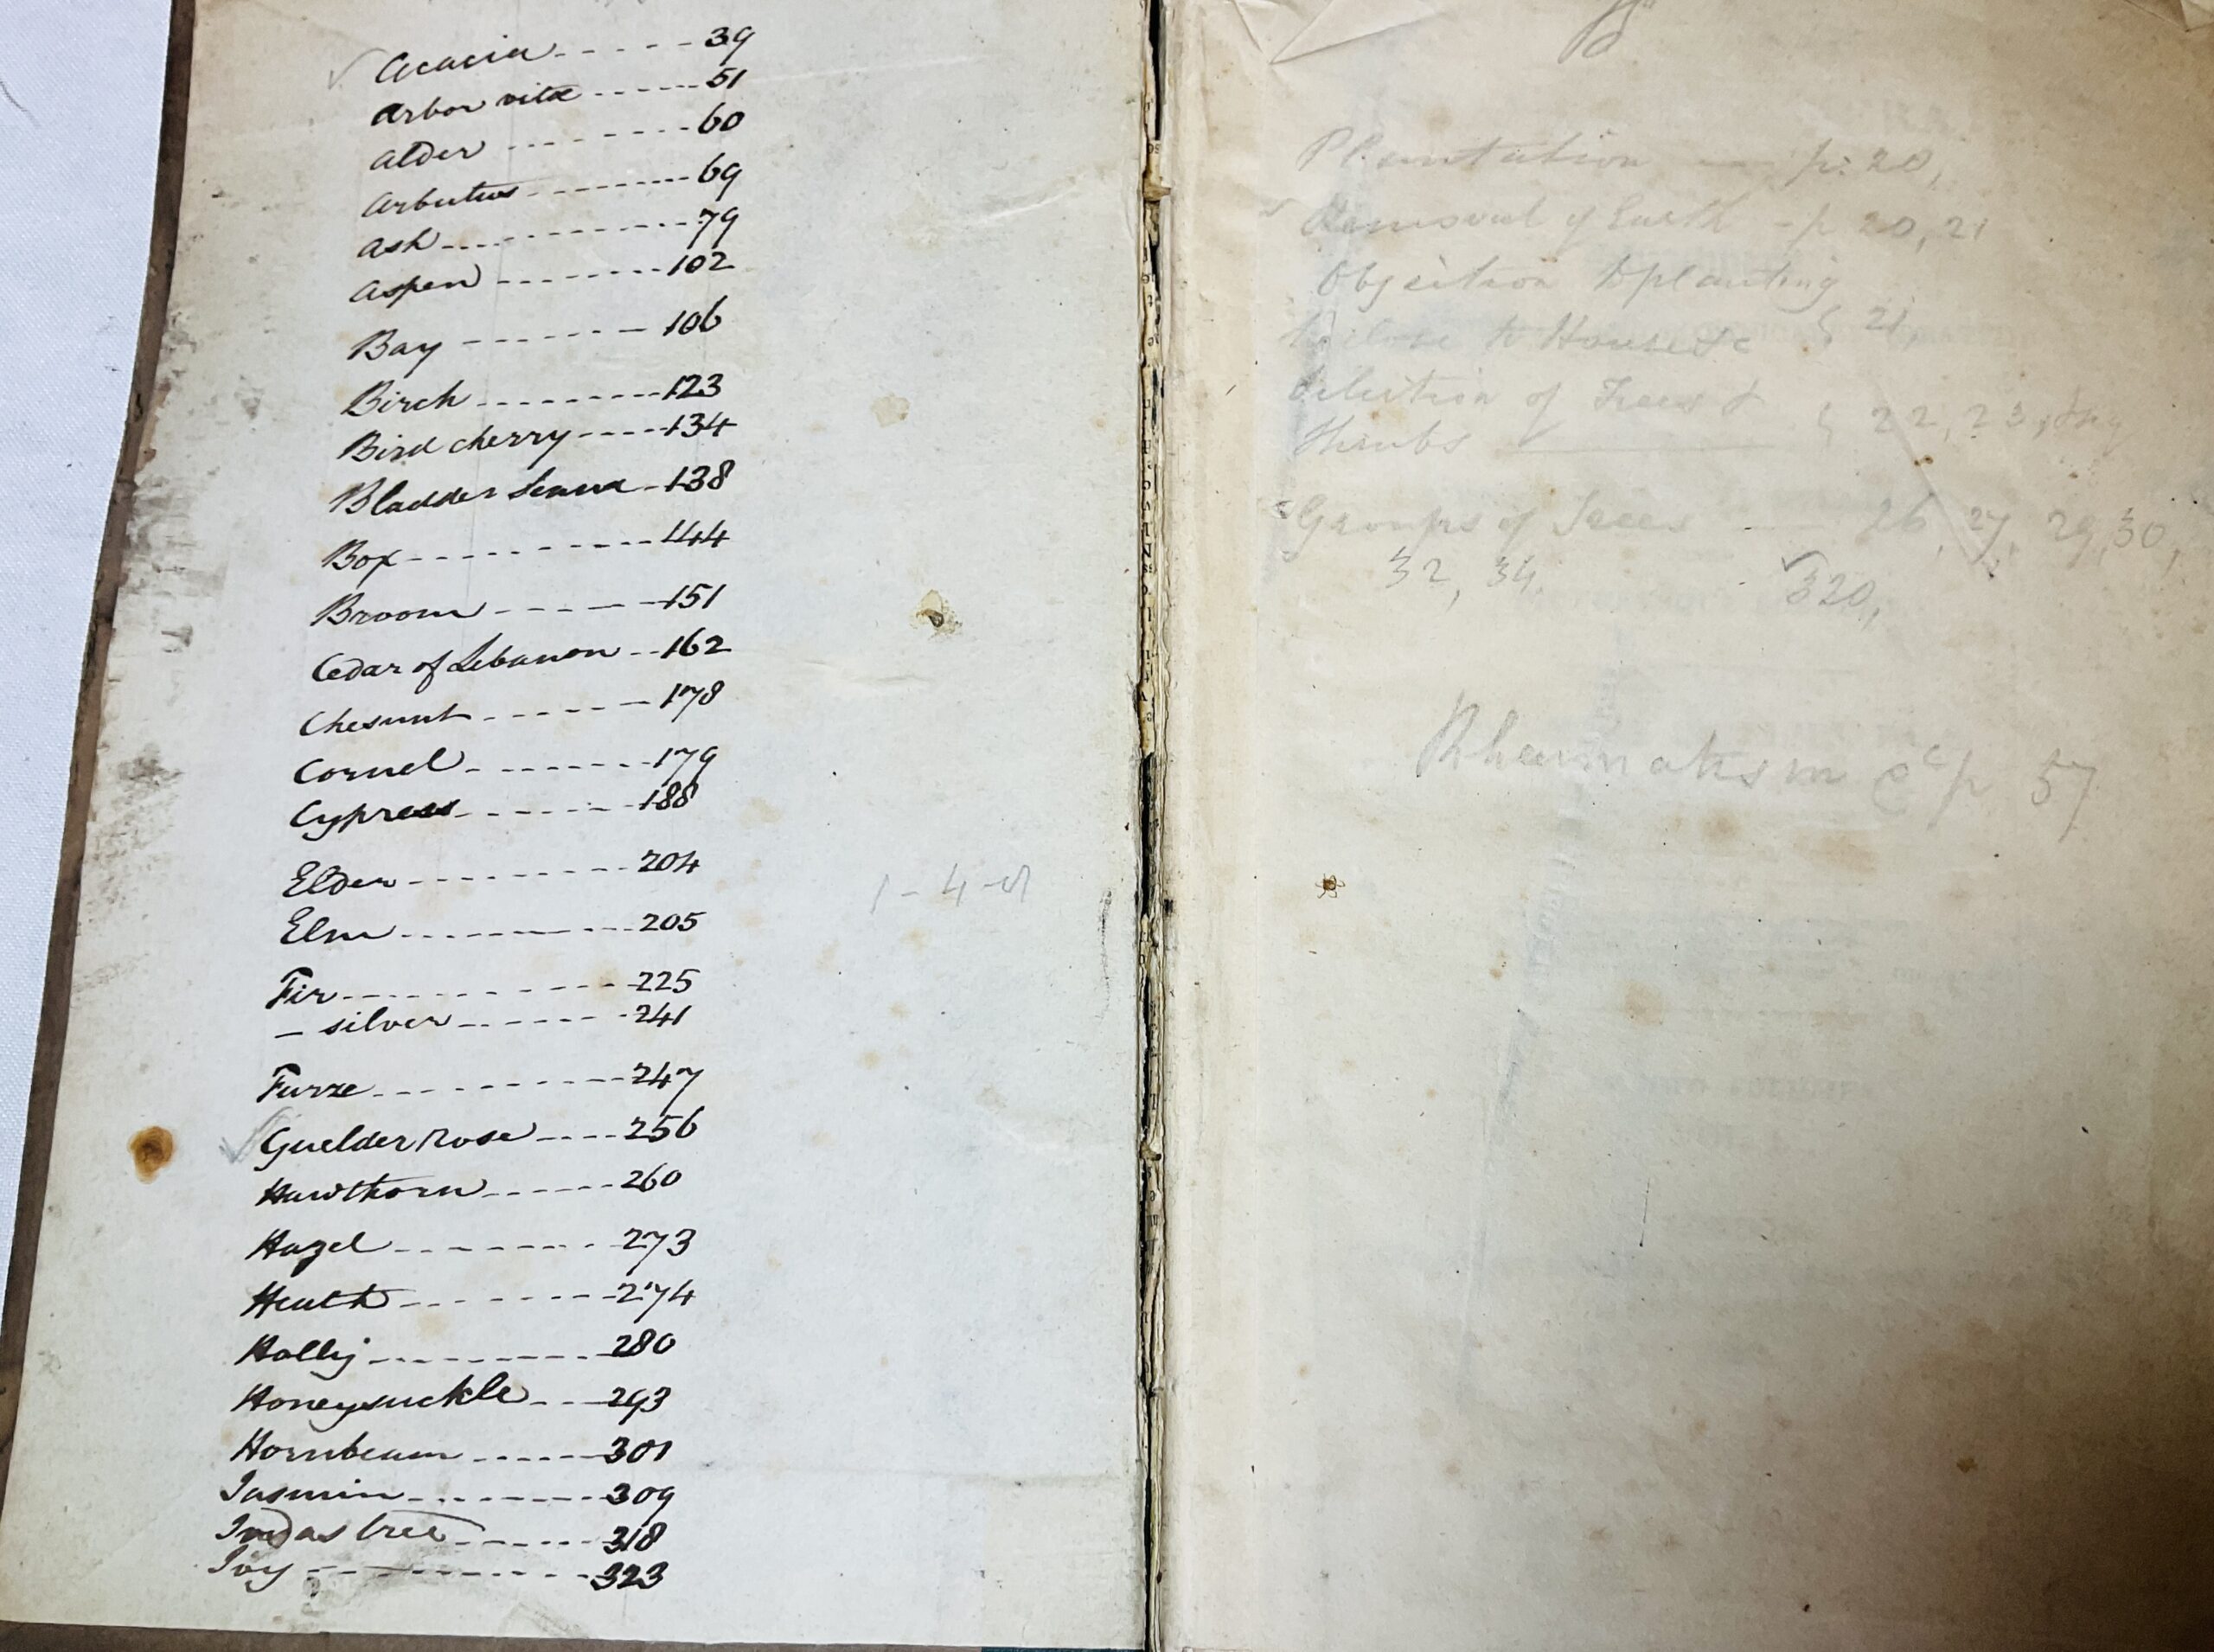 ✓ Acacia - - - - - 39
Arbor vitæ - - - - - 51
Alder - - - - - - - 60
Arbutus - - - - - - - 69
Ash - - - - - - - - - 79
Aspen - - - - - - - 102
Bay - - - - - - - 106
Birch - - - - - - - - - 123
Bird cherry - - - - 134
Bladder Senna - 138
Box - - - - - - - - - - 144
Broom - - - - - - 151
Cedar of Lebanon - - 162
Chesnut - - - - - - 178
Cornel - - - - - - - - 179
Cypress - - - - - - - 188
Elder - - - - - - - - - 204
Elm - - - - - - - - - 205
Fir - - - - - - - - - - 225
— silver - - - - - - - 241
Furze - - - - - - - - - 247
✓ Guelder Rose - - - - 256
Hawthorn - - - - - - 260
Hazel - - - - - - - - 273
Heath - - - - - - - - 274
Holly - - - - - - - - - 280
Honeysuckle - - - 293
Hornbeam - - - - - - 301
Jasmin - - - - - - - - 309
Judas tree - - - - - - 318
Ivy - - - - - - - - - - 323
1 - 4 -
Plantation — p. 20,
Removal of Earth - p 20, 21
Objection to planting
close to House &c } 21,
Selection of Trees &
Shrubs } 22, 23,
Groups of Trees — 26, 27, 29, 30,
32, 34, ✓ 320,
Rheumatism &c p 57